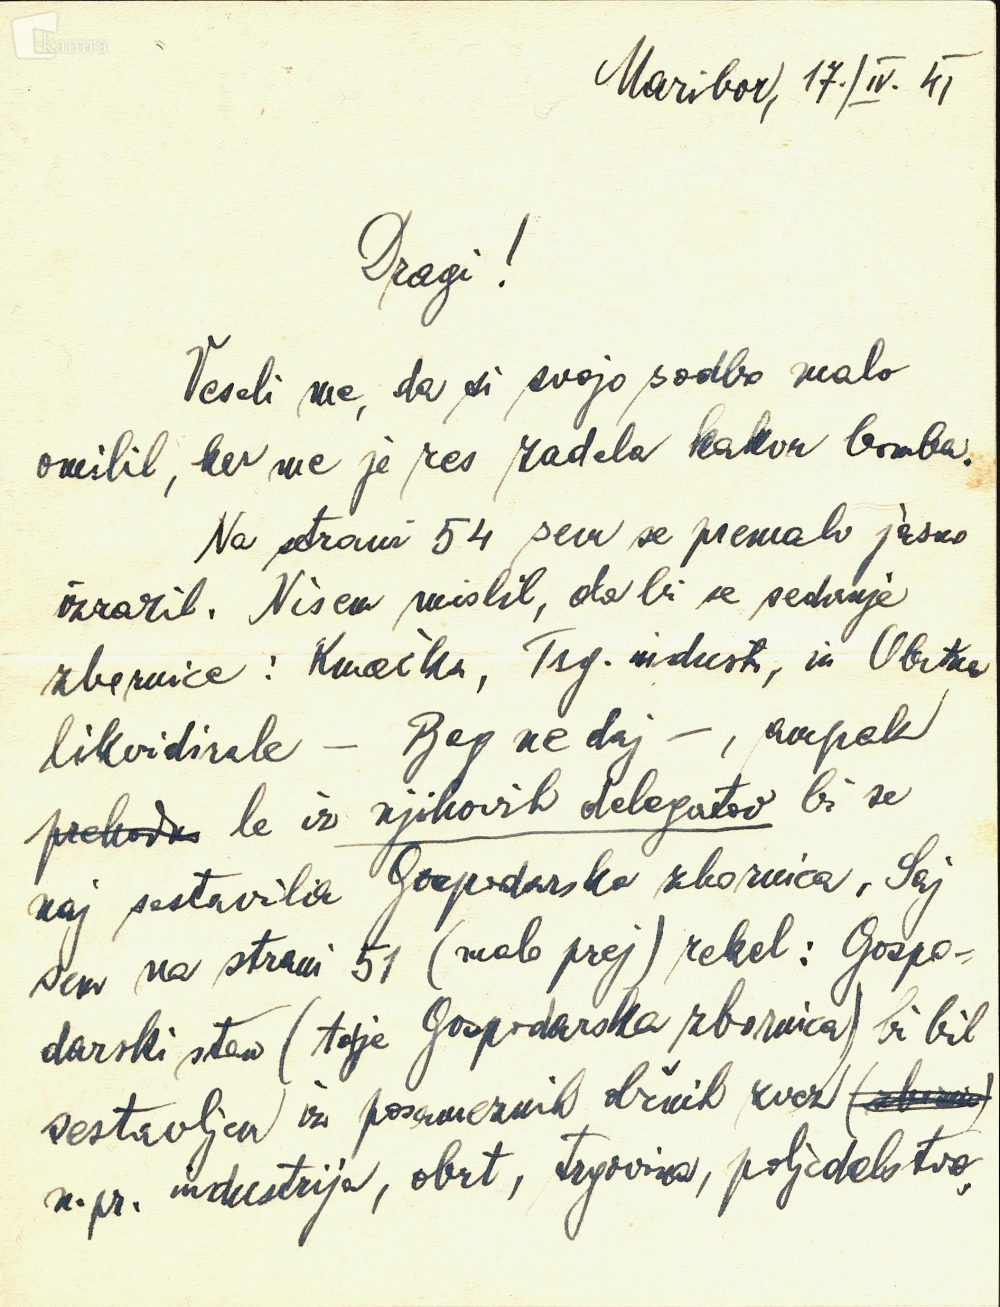 kamra
Maribor, 17./IV. 41
Dragi!
Veseli me, da si svojo sodbo malo
omilil, ker me je res zadela kakor bomba.
Na strani 54 sem se premalo jasno
izrazil. Nisem mislil, da bi se sedanje
zbornice: Kmečka, Trg. indust., in Obrtna
likvidirale – Bog ne daj –, ampak
prehodno le iz njihovih delegatov bi se
naj sestavila Gospodarska zbornica. Saj
sem na strani 51 (malo prej) rekel: Gospo-
darski stan (to je Gospodarska zbornica) bi bil
sestavljen iz posameznih držnih zvez
n.pr. industrija, obrt, trgovina, poljedelstvo,